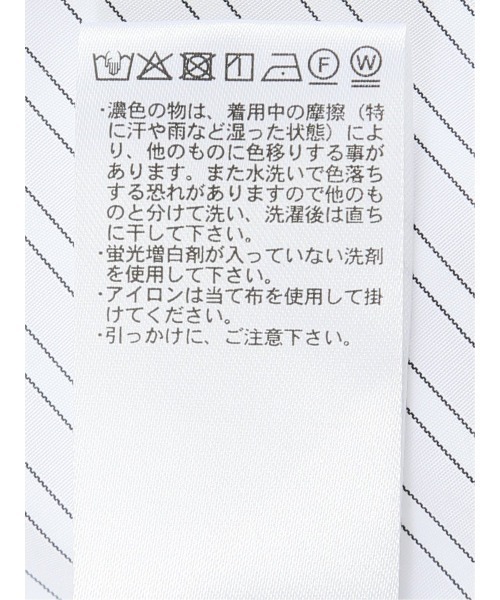 F W
・濃色の物は、着用中の摩擦（特
に汗や雨など湿った状態）によ
り、他のものに色移りする事が
あります。また水洗いで色落ち
する恐れがありますので他のも
のと分けて洗い、洗濯後は直ち
に干して下さい。
・蛍光増白剤が入っていない洗剤
を使用して下さい。
・アイロンは当て布を使用して掛
けてください。
・引っかけに、ご注意下さい。